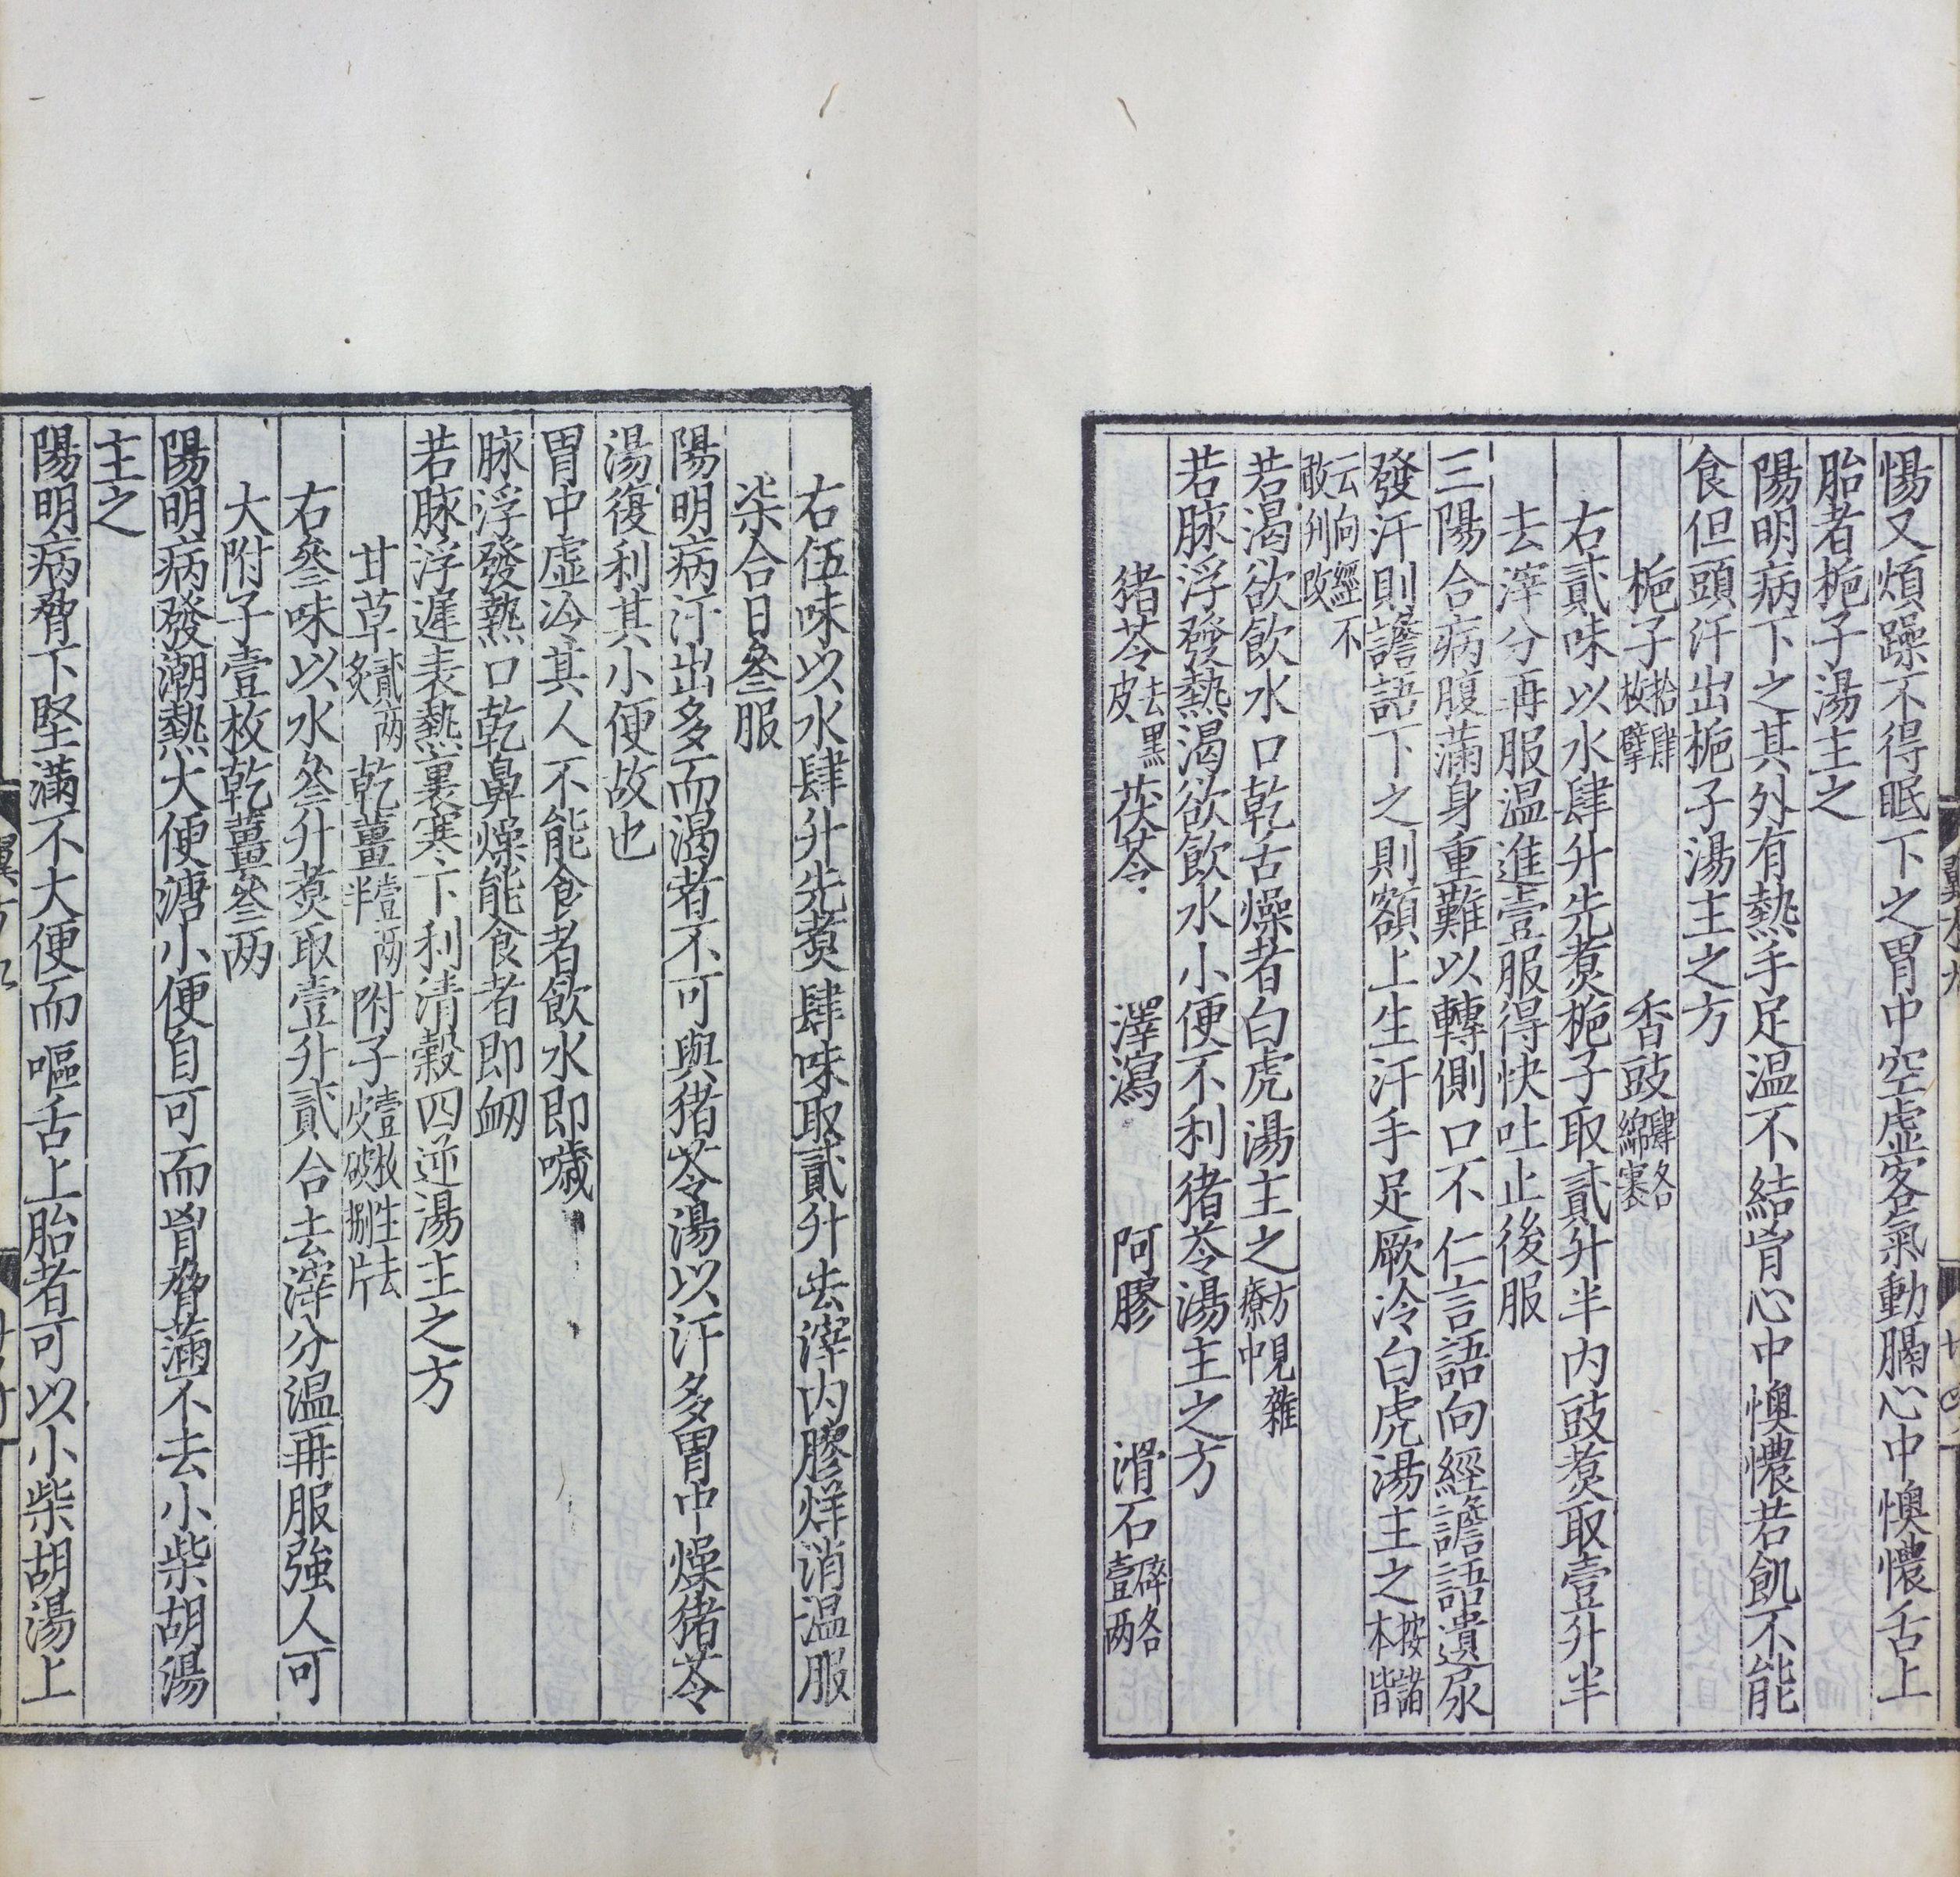 惕又煩躁不得眠下之胃中空虛客氣動膈心中懊憹舌上
胎者梔子湯主之
陽明病下之其外有熱手足温不結胷心中懊憹若飢不能
食但頭汗出梔子湯主之方
梔子拾肆枚擘 香豉肆合綿裹
右貳味以水肆升先煑梔子取貳升半内豉煑取壹升半
去滓分再服温進壹服得快吐止後服
三陽合病腹滿身重難以轉側口不仁言語向經譫語遺尿
發汗則譫語下之則額上生汗手足厥冷白虎湯主之按諸本皆
云向經不敢刋改
若渴欲飲水口乾舌燥者白虎湯主之方見雜療中
若脉浮發熱渴欲飲水小便不利猪苓湯主之方
猪苓去黑皮 茯苓 澤瀉 阿膠 滑石碎各壹两
右伍味以水肆升先煑肆味取貳升去滓内膠烊消温服
柒合日叄服
陽明病汗出多而渴者不可與猪苓湯以汗多胃中燥猪苓
湯復利其小便故也
胃中虛冷其人不能食者飲水即噦
脉浮發熱口乾鼻燥能食者即衂
若脉浮遲表熱裏寒下利清穀四逆湯主之方
甘草貳两炙 乾薑壹两半 附子壹枚生去皮破捌片
右叄味以水叄升煑取壹升貳合去滓分温再服強人可
大附子壹枚乾薑叄两
陽明病發潮熱大便溏小便自可而胷脅滿不去小柴胡湯
主之
陽明病脅下堅滿不大便而嘔舌上胎者可以小柴胡湯上